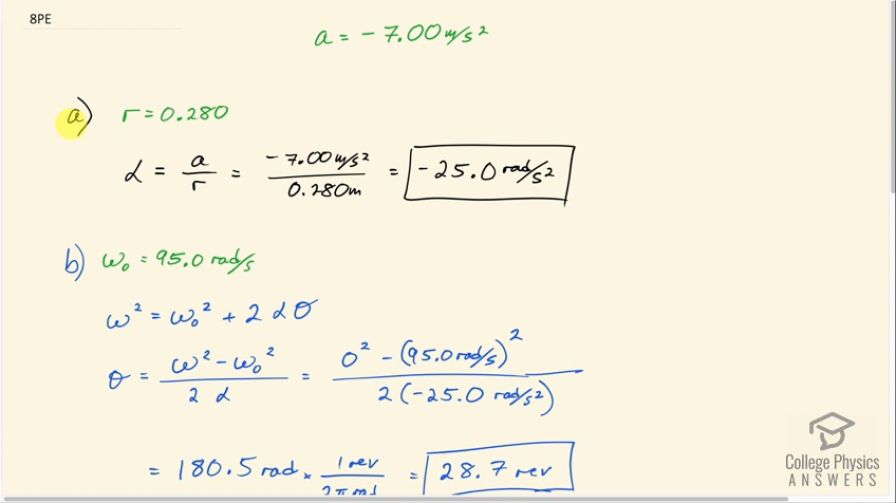 8PE
a = - 7.00 m/s²
a) r = 0.280
α = a/r = (- 7.00 m/s²)/(0.280m) = - 25.0 rad/s²
b) ω₀ = 95.0 rad/s
ω² = ω₀² + 2 α θ
θ = (ω² - ω₀²)/(2 α) = (0² - (95.0 rad/s)²)/(2 (- 25.0 rad/s²))
= 180.5 rad × (1 rev)/(2π rad) = 28.7 rev
College Physics
ANSWERS